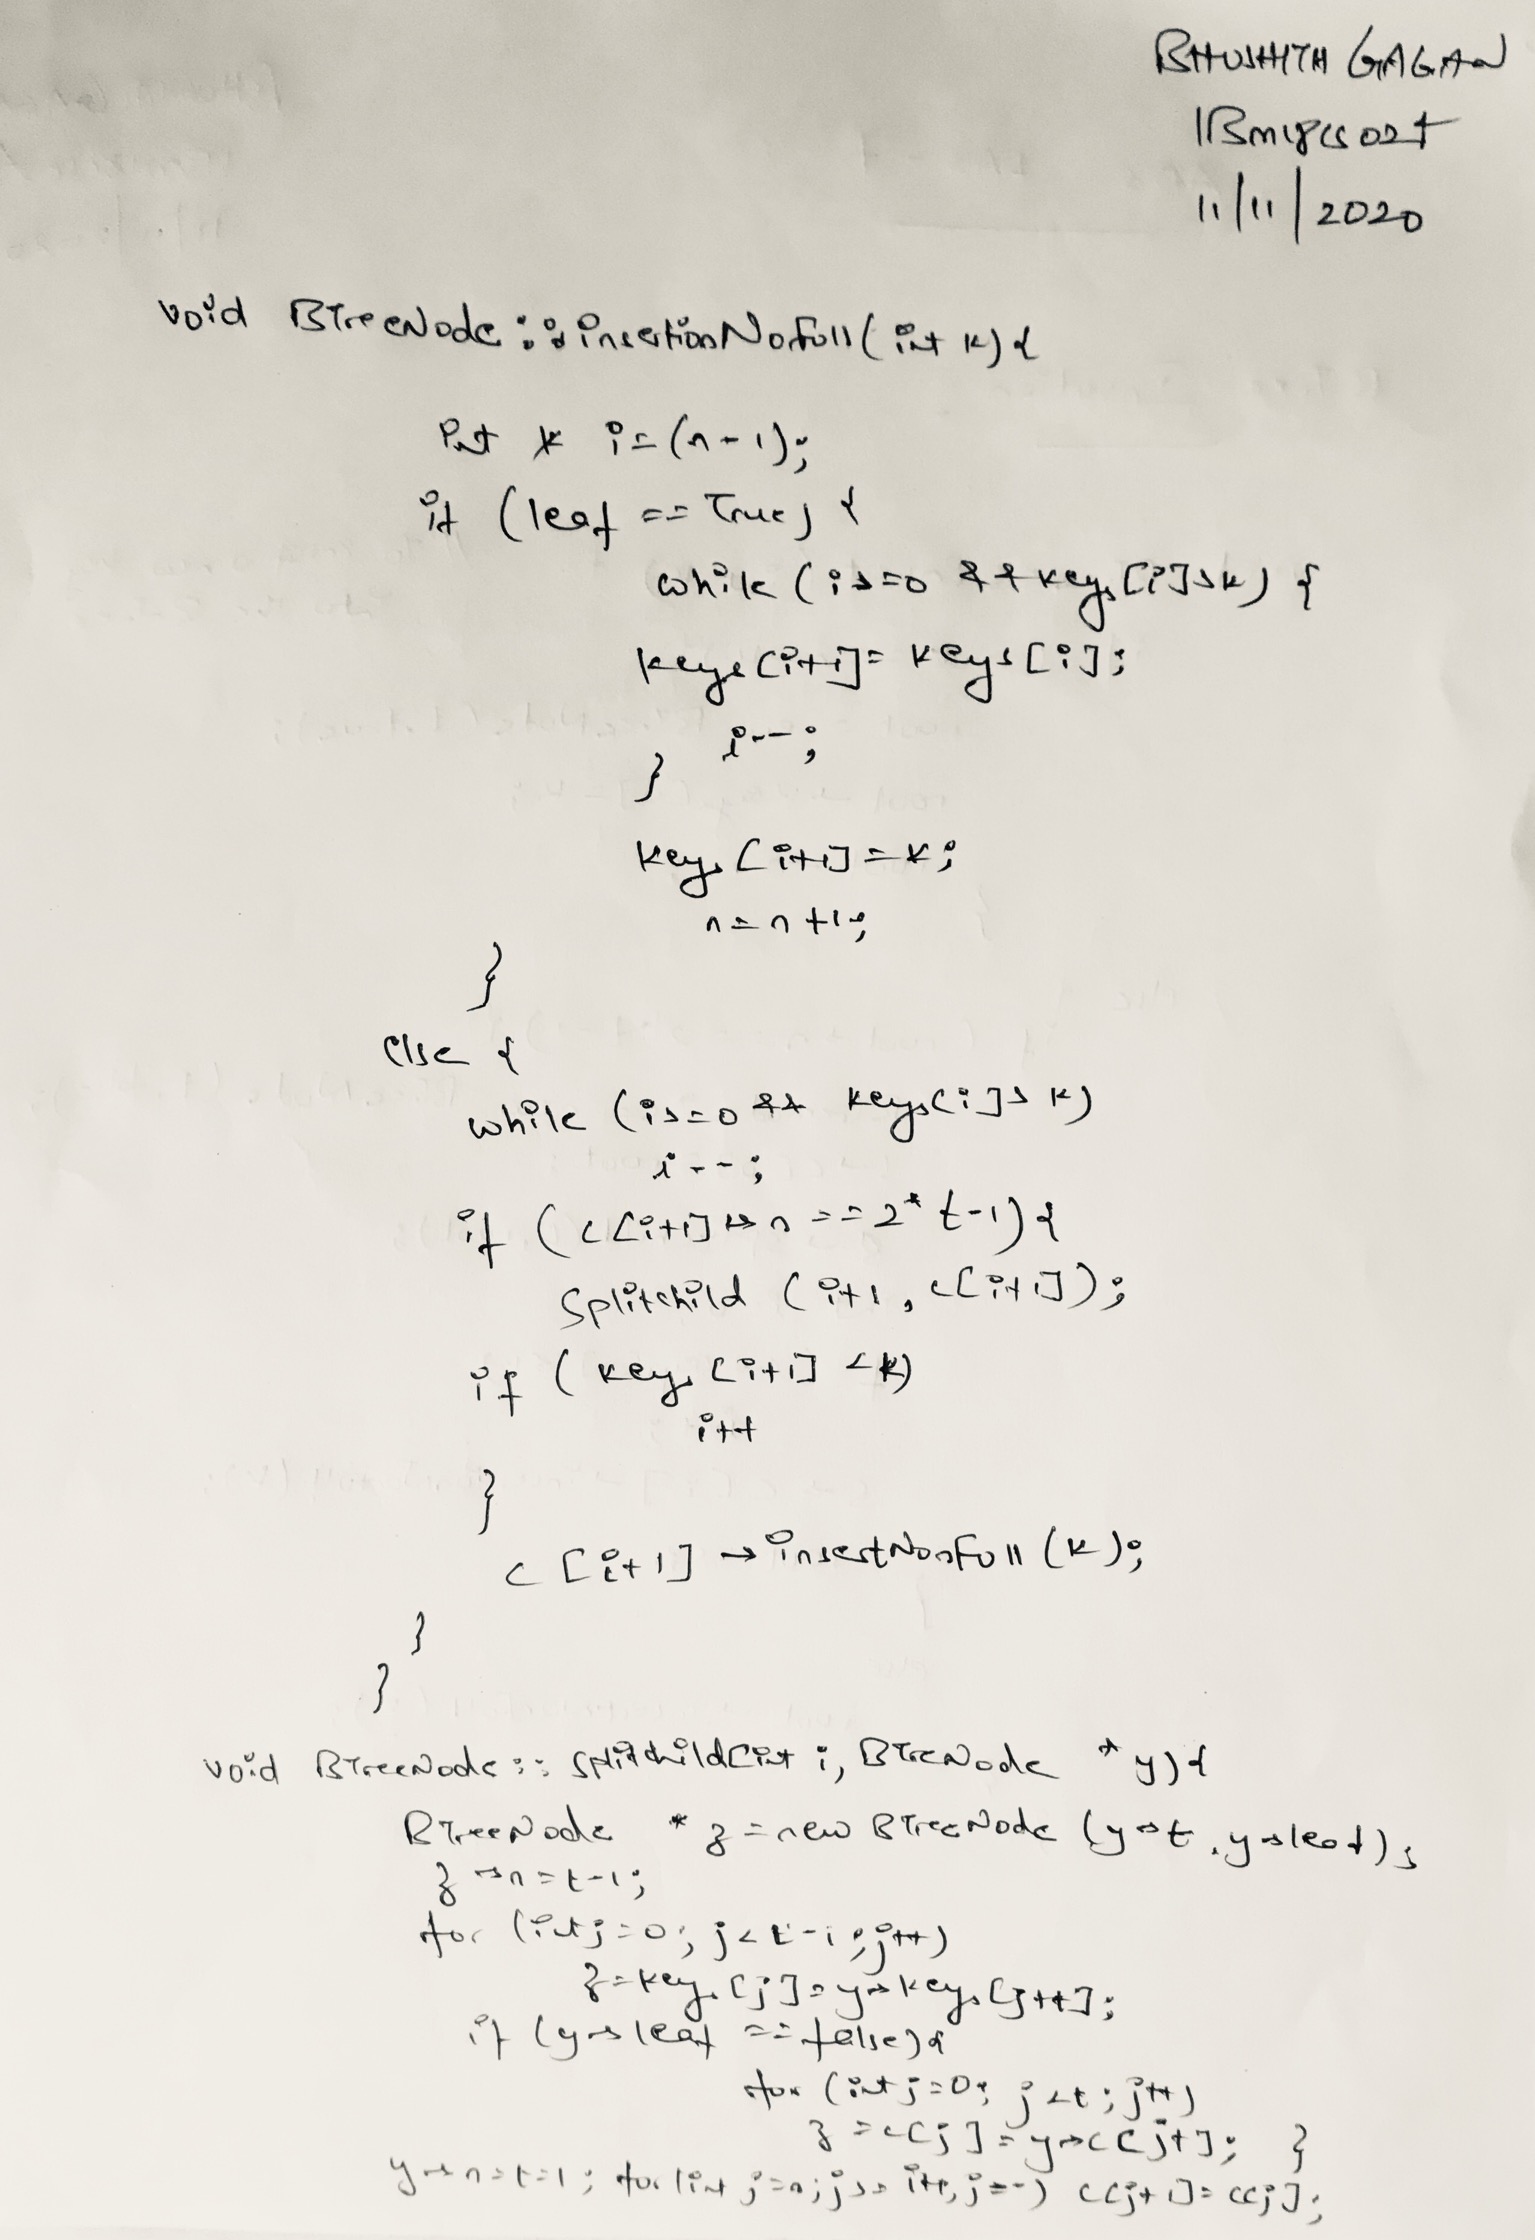 BHUSHITH GAGAN
1BM18CS027
11/11/2020
void BTreeNode::insertionNonfull(int k){
int * i=(n-1);
if (leaf == True) {
while (i>=0 && keys[i]>k) {
keys[i+1]= keys[i];
i--;
}
keys[i+1]=k;
n=n+1;
}
else {
while (i>=0 && keys[i]> k)
i--;
if (c[i+1]->n == 2*t-1){
splitchild (i+1, c[i+1]);
if (keys[i+1] <k)
i++
}
c[i+1] → insertNonFull (k);
}
}
void BTreeNode:: splitchild(int i, BTreeNode *y){
BTreeNode *z = new BTreeNode (y→t, y→leaf);
z→n=t-1;
for (int j=0; j<t-1; j++)
z=keys[j]=y→keys[j++];
if (y→leaf == false){
for (int j=0; j<t; j++)
z=c[j]=y→c[j+]; }
y→n=t-1; for(int j=n; j>= i++; j=-) c[j+1]=c[j];